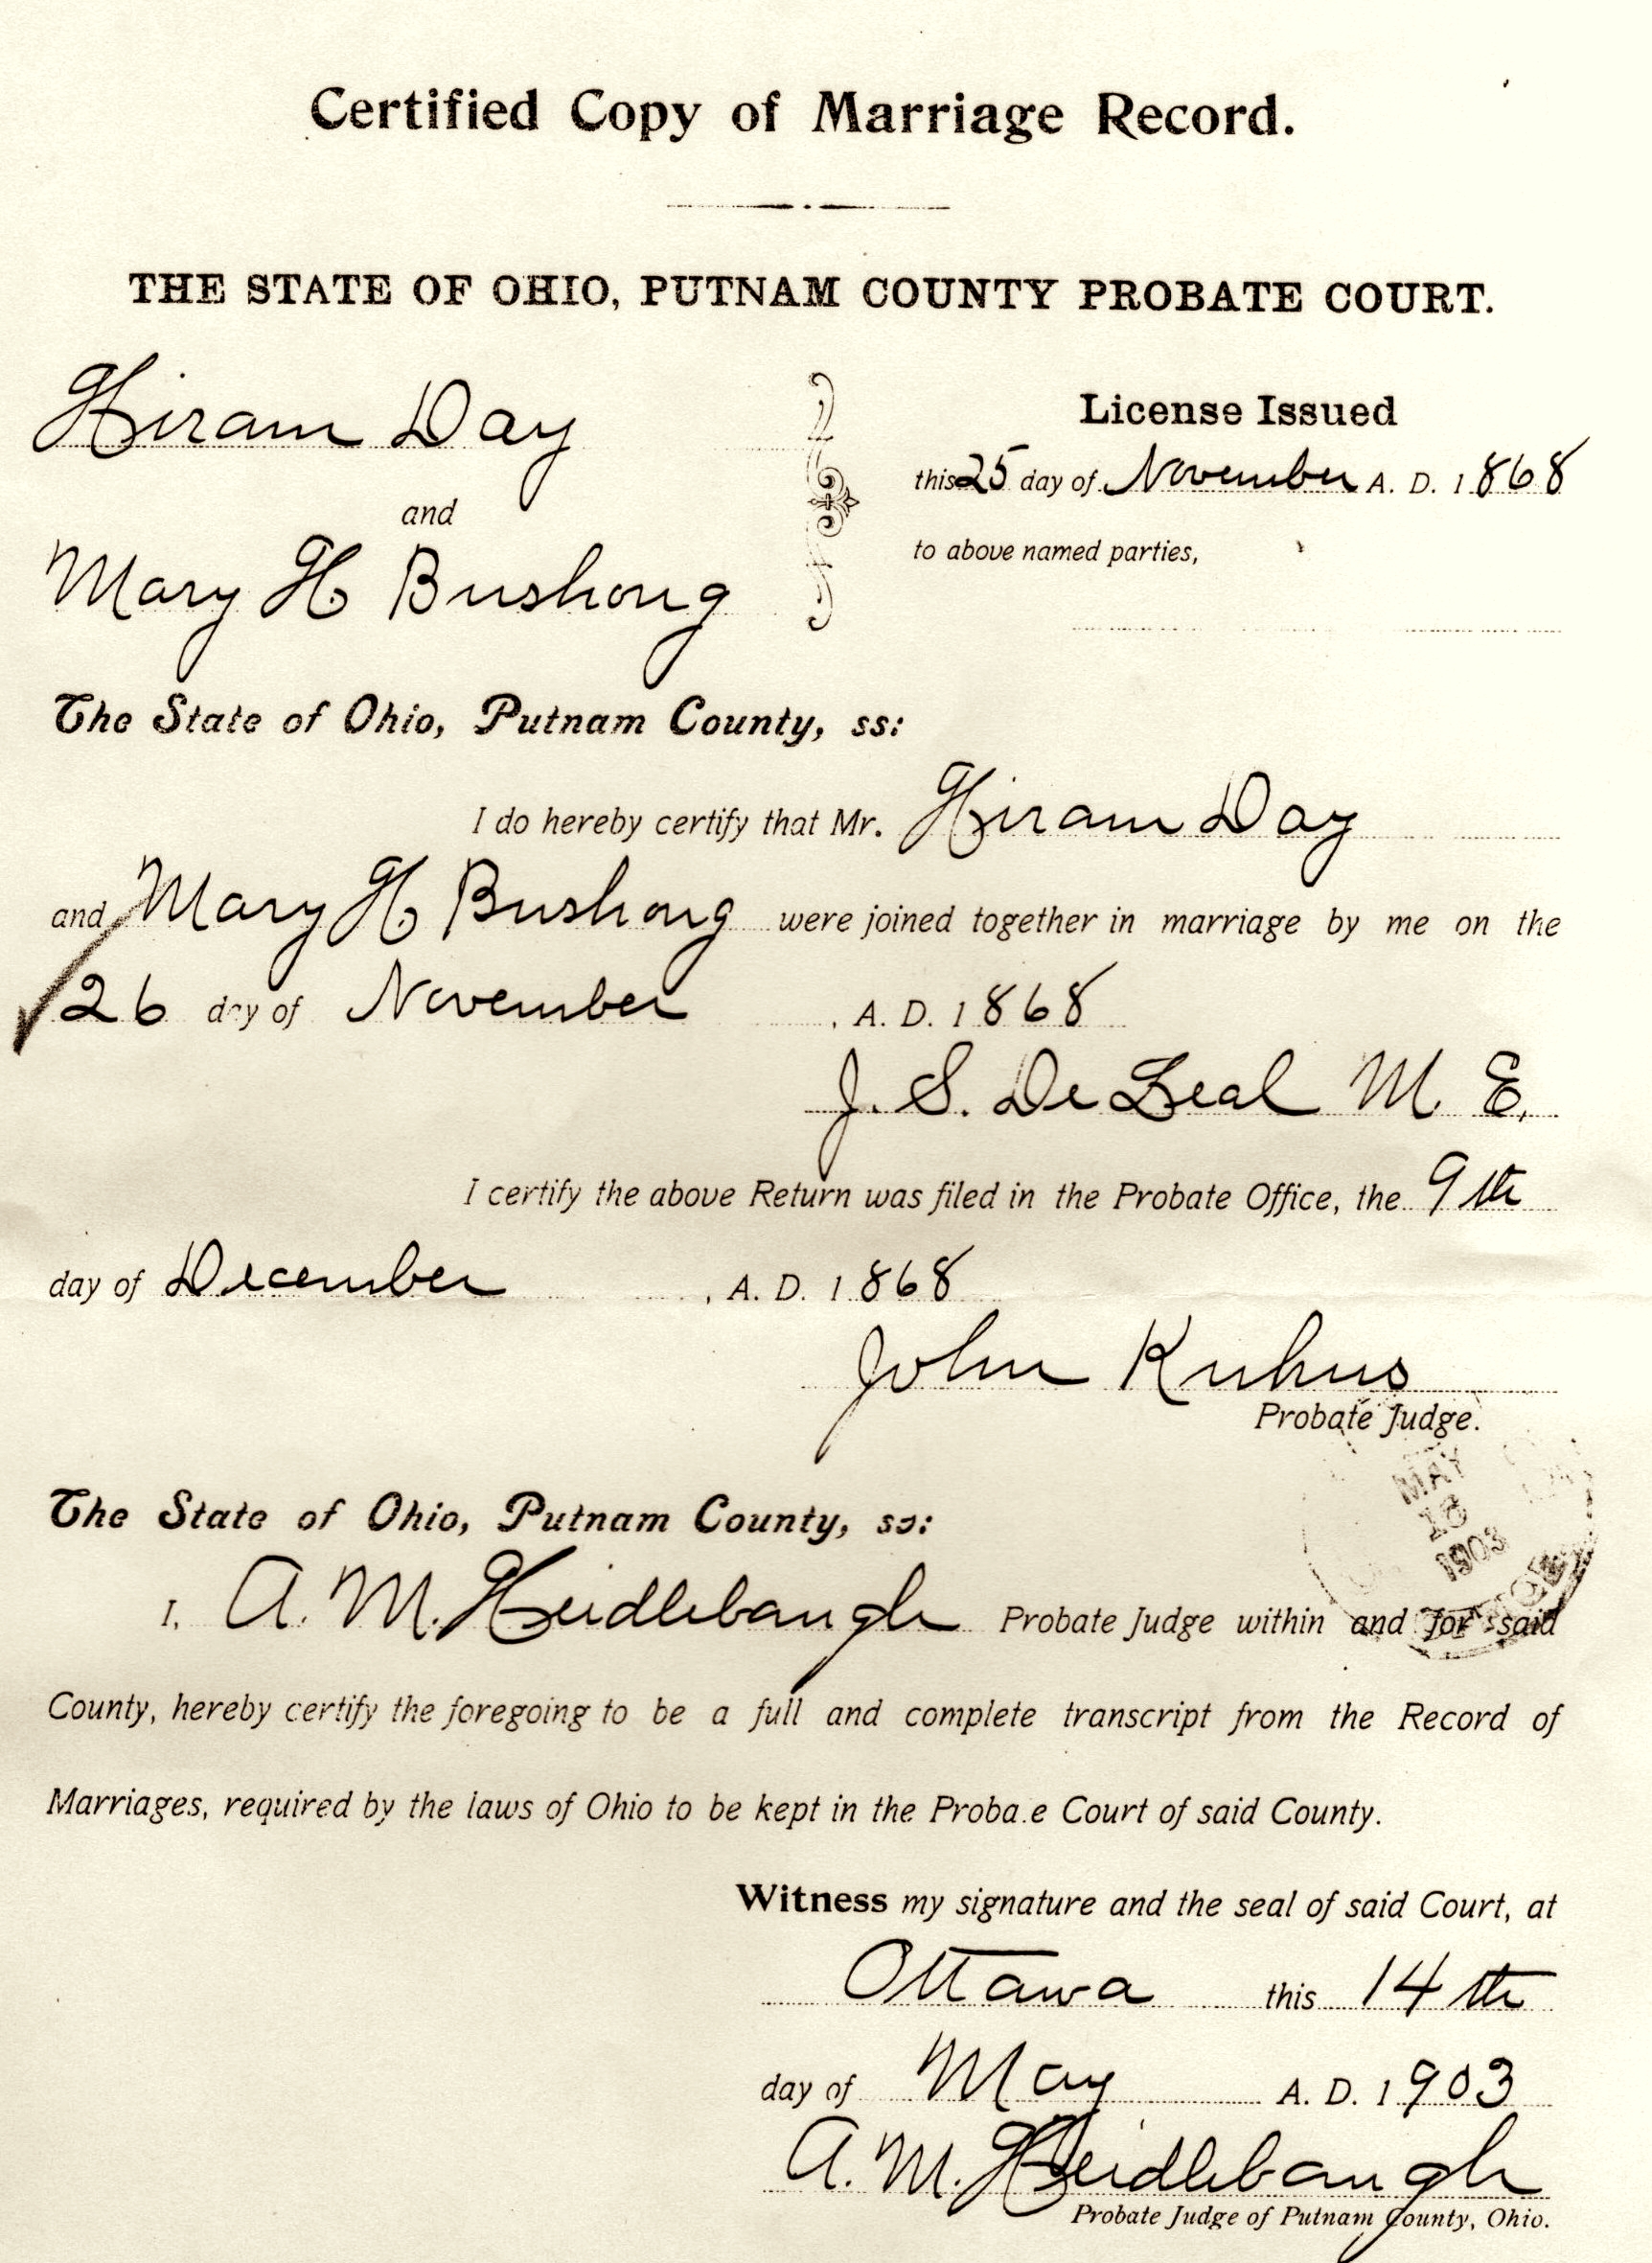 Certified Copy of Marriage Record.
THE STATE OF OHIO, PUTNAM COUNTY PROBATE COURT.
Hiram Day
and
Mary H Bushong
License Issued
this 25 day of November A. D. 1868
to above named parties,
The State of Ohio, Putnam County, ss:
I do hereby certify that Mr. Hiram Day
and Mary H Bushong were joined together in marriage by me on the
26 day of November , A. D. 1868
J. S. De Leal M. E.
I certify the above Return was filed in the Probate Office, the 9th
day of December , A. D. 1868
John Kuhus
Probate Judge.
MAY
18
1903
OFFICE
The State of Ohio, Putnam County, ss:
I, A. M. Heidlebaugh Probate Judge within and for said
County, hereby certify the foregoing to be a full and complete transcript from the Record of
Marriages, required by the laws of Ohio to be kept in the Proba.e Court of said County.
Witness my signature and the seal of said Court, at
Ottawa this 14th
day of May A. D. 1903
A. M. Heidlebaugh
Probate Judge of Putnam County, Ohio.